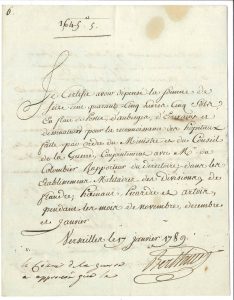 6.
1645 # 5.
Je Certifie avoir dépensé la somme de
seize cent quarante Cinq livres Cinq Sols
En frais de Poste, d'auberges,
pour la reconnaissance des hôpitaux
faite par ordre du Ministre et du Conseil
de la Guerre, Conjointement avec M. De
Colombier Rapporteur du directoire, dans les
Etablissemens Militaires des divisions de
flandre, hainaut, Picardie et artois,
pendant les mois de novembre, decembre
et janvier.
Versailles le 17 janvier 1789.
le Conseil de la guerre
a approuvé que le